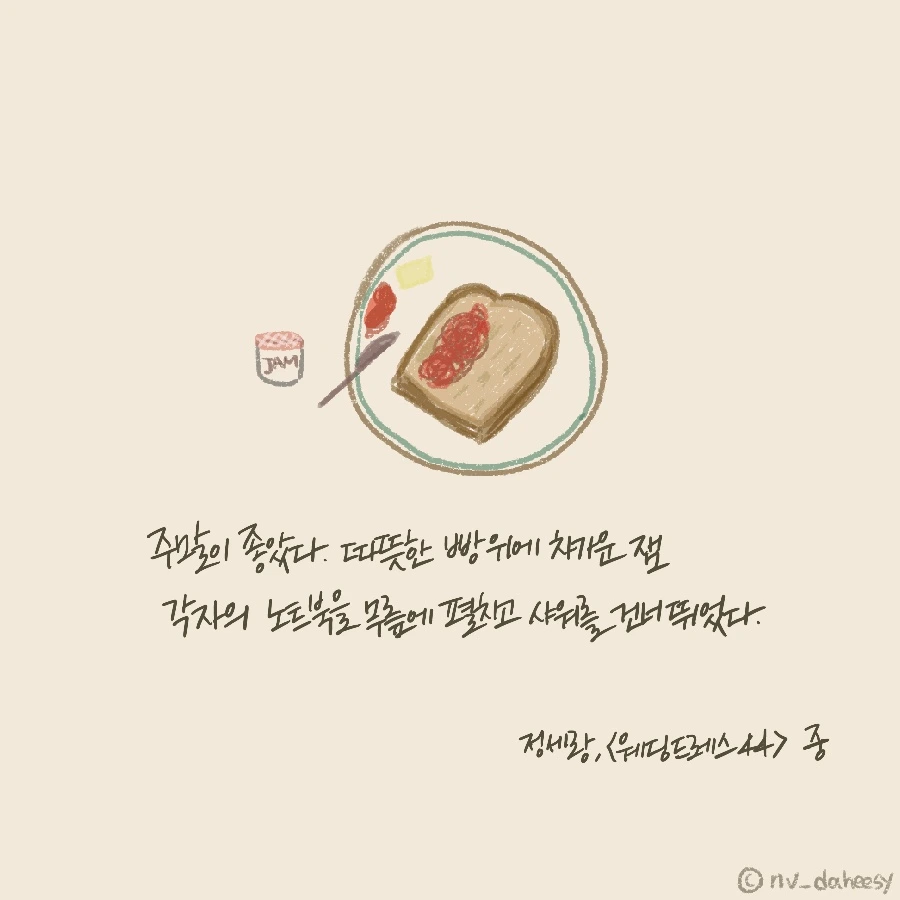 JAM
주말이 좋았다. 따뜻한 빵 위에 차가운 잼
각자의 노트북을 무릎에 펼치고 샤워를 건너뛰었다.
정세랑, <웨딩드레스44> 중
© nv_daheesy